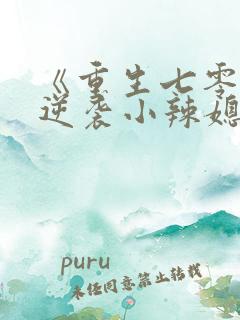 《重生七零
逆袭小辣媳
puru
未经同意禁止转载